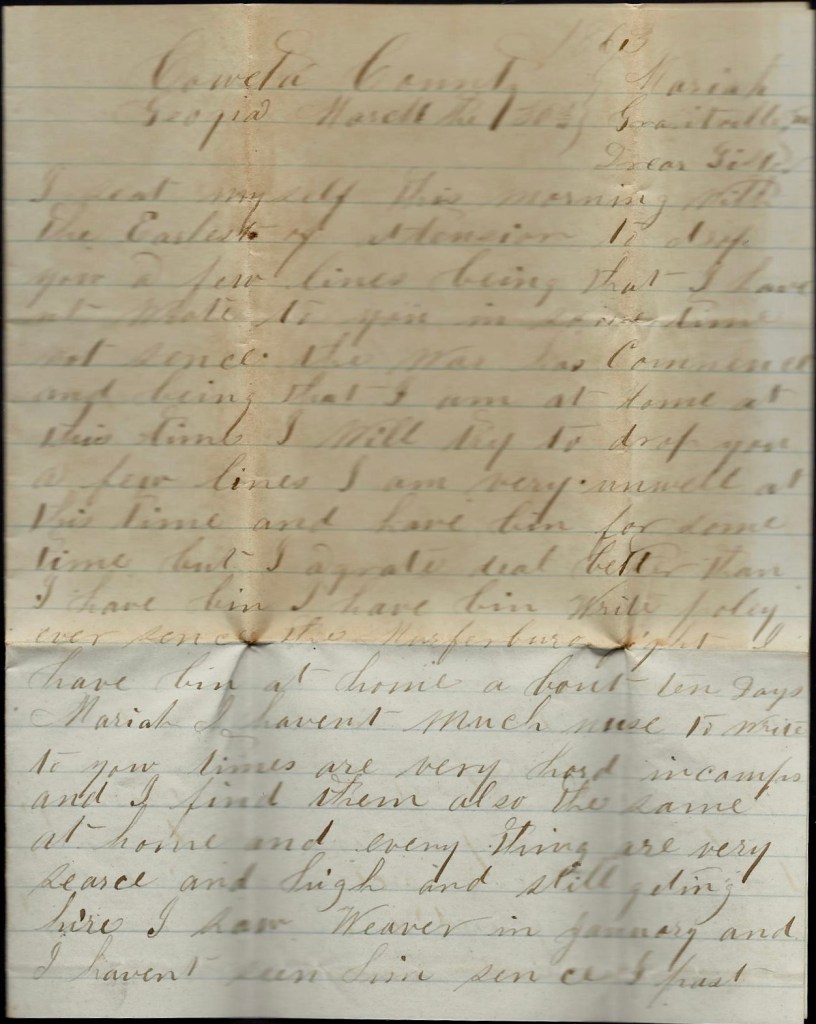 1863
Coweta County } Mariah
Geogia March the 20 } Granitville
Dear Sister
I seat myself this morning With
the Earlest of atension to drop
you a few lines being that I have
not wrote to you in some time
not sence the War has Commenced
and being that I am at home at
this time I Will try to drop you
a few lines I am very unwell at
this time and have bin for some
time but I a grate deal better than
I have bin I have bin Write poley
ever sence the fight I
have bin at home a bout ten days
Mariah I havent much nuse to write
to you times are very hard in camps
and I find them also the same
at home and every thing are very
searce and high and still geting
hire I saw Weaver in January and
I havent seen him sence I past